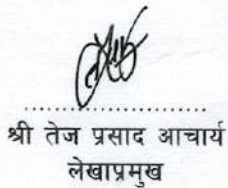 श्री तेज प्रसाद आचार्य
लेखाप्रमुख